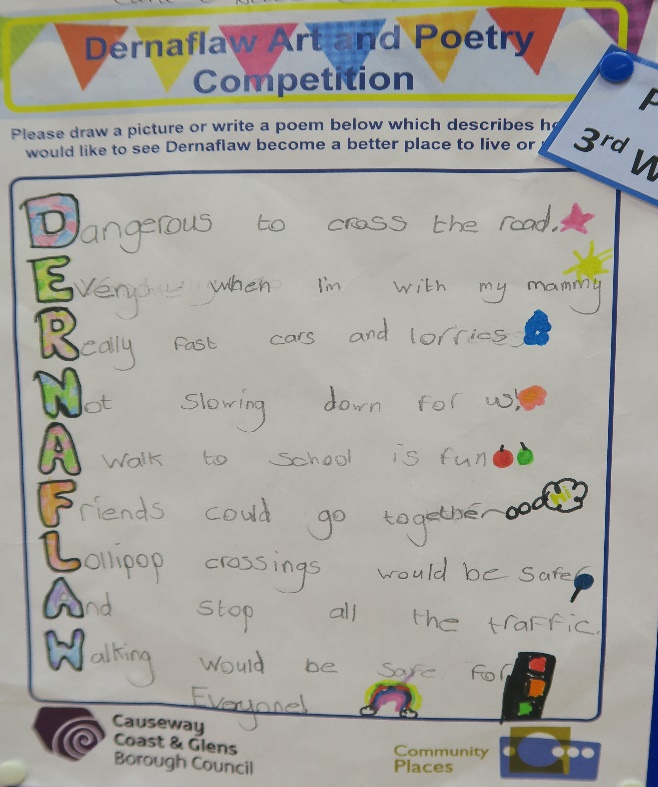 Dernaflaw Art and Poetry
Competition
Please draw a picture or write a poem below which describes
would like to see Dernaflaw become a better place to live or
3rd
Dangerous to cross the road.
Even when I'm with my mammy
Really fast cars and lorries
Not slowing down for us!
A walk to school is fun
Friends could go together
Hi
Lollipop crossings would be safe
And stop all the traffic.
Walking would be safe for
Everyone!
Causeway
Coast & Glens
Borough Council
Community
Places